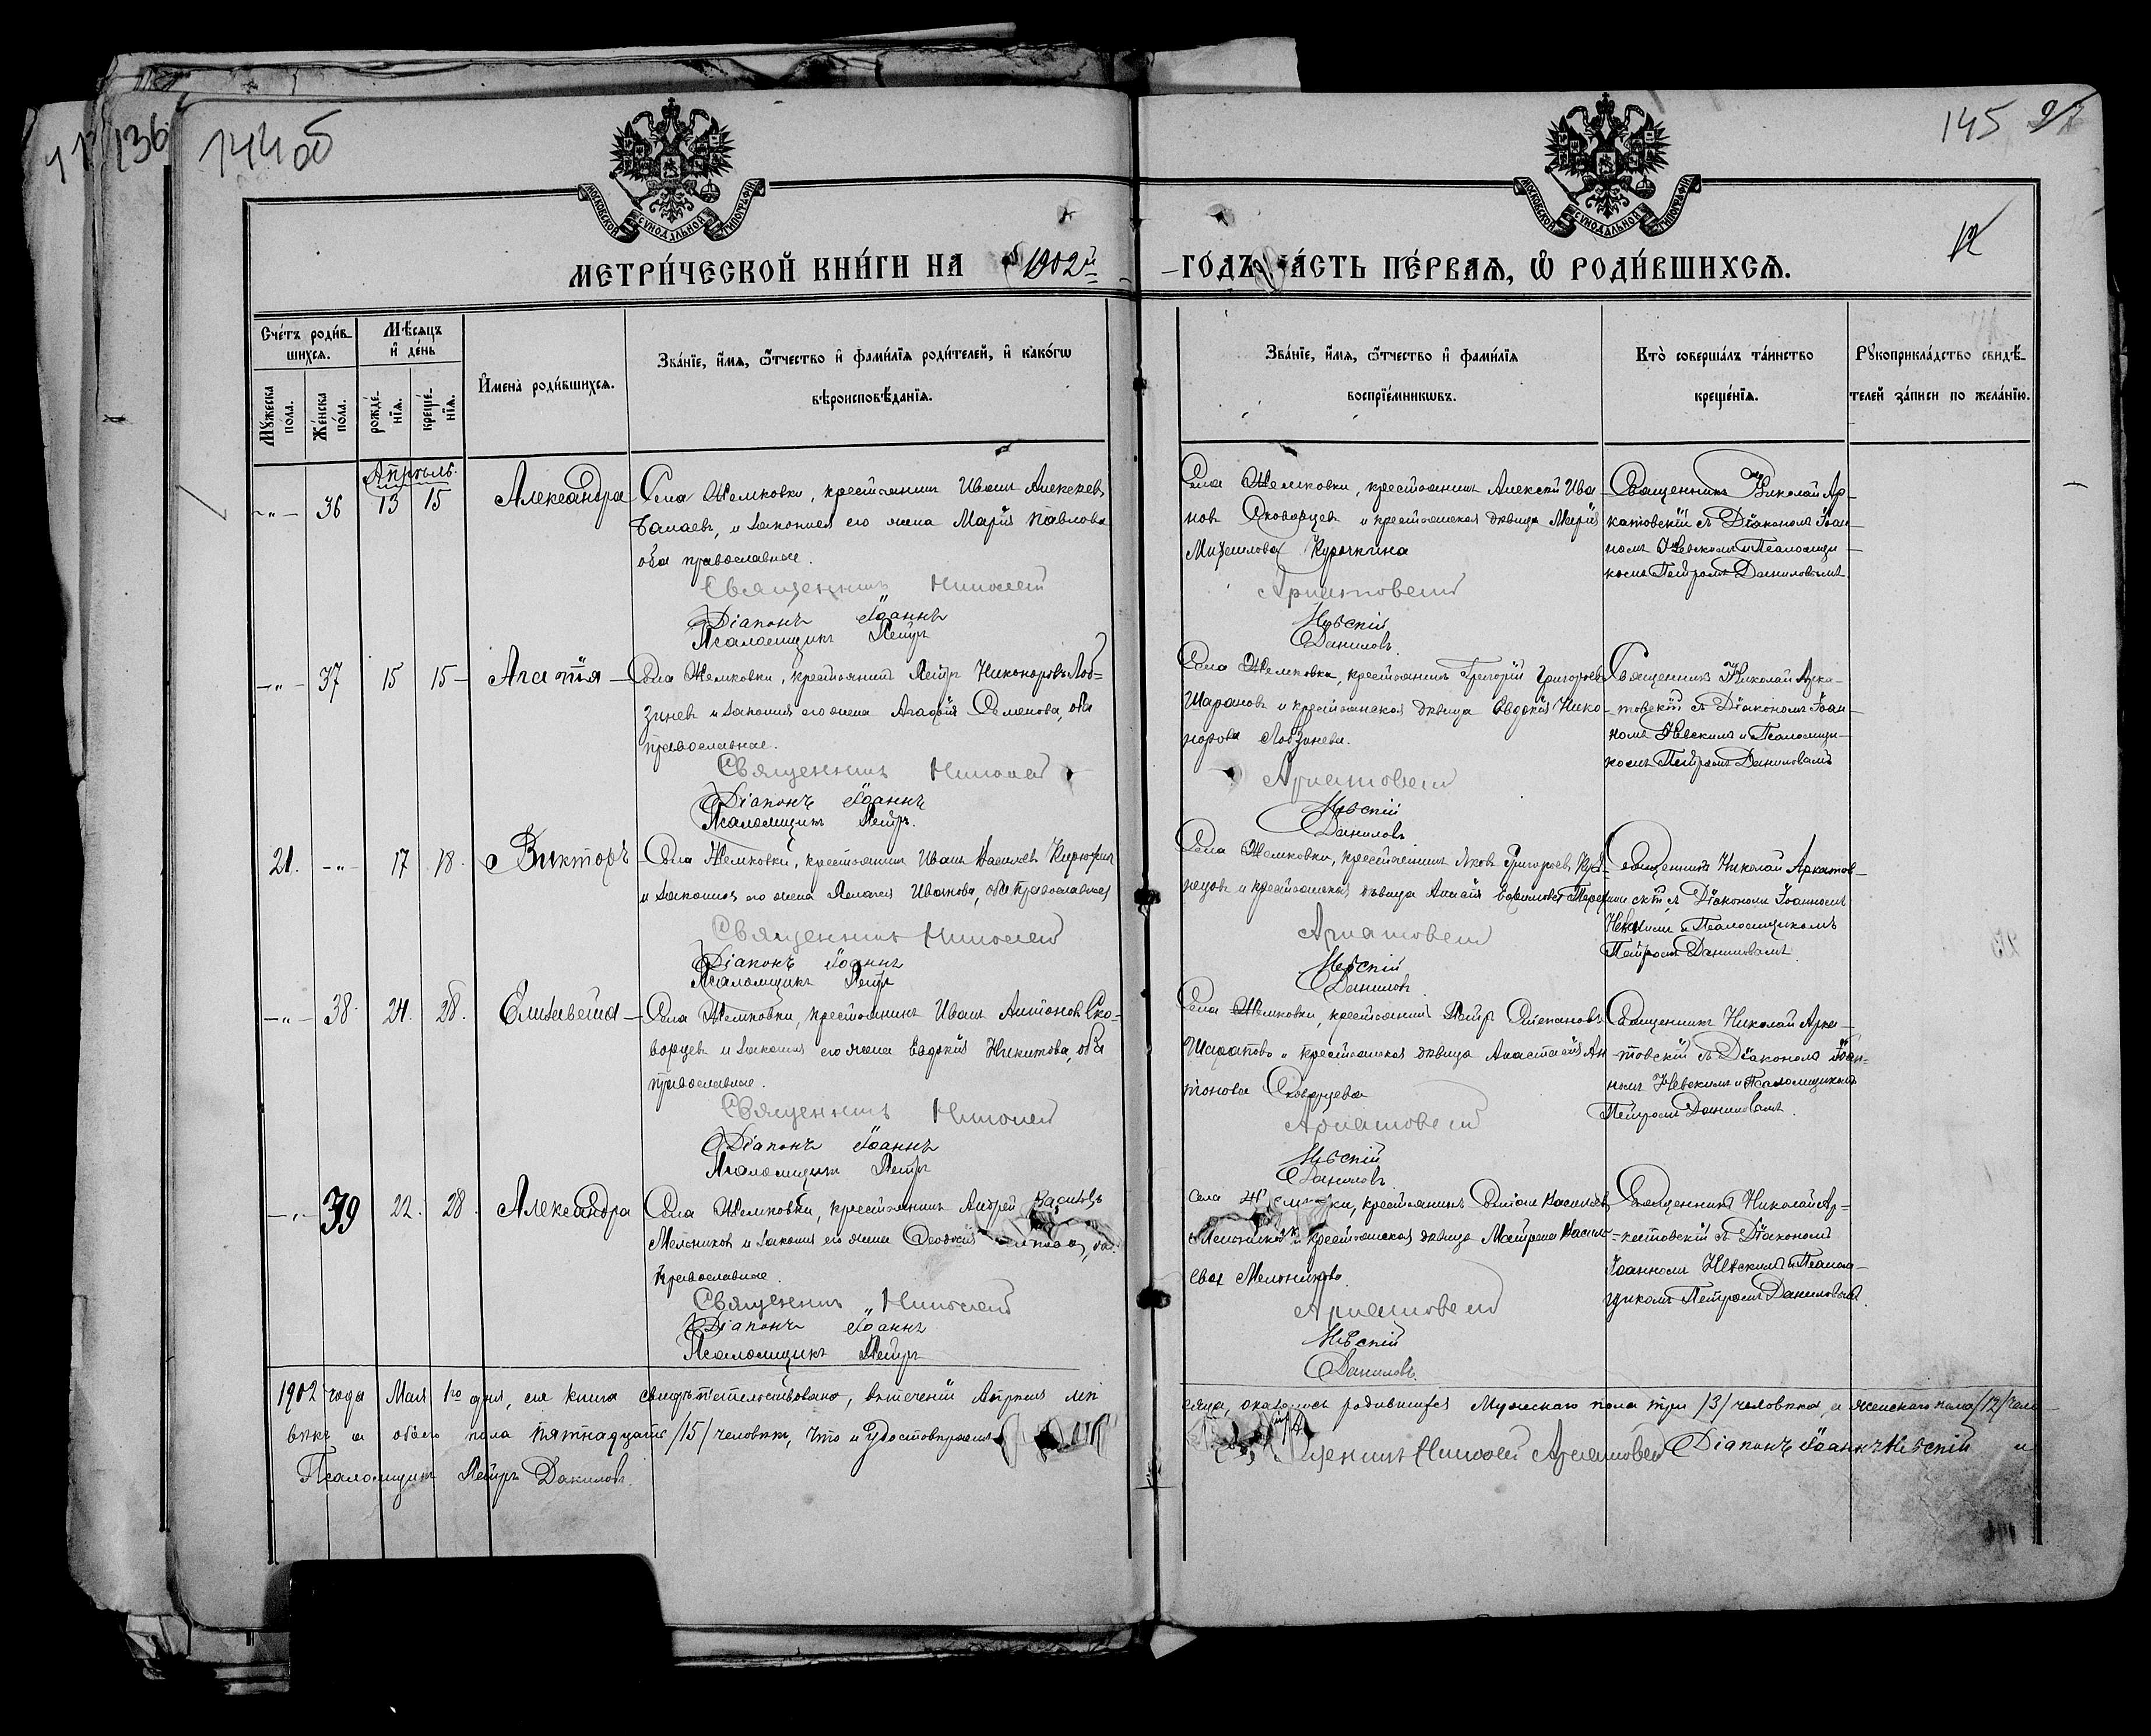 136
144об
145
МОСКОВСКОЙ СУНОДАЛЬНОЙ ТИПОГРАФІИ
МОСКОВСКОЙ СУНОДАЛЬНОЙ ТИПОГРАФІИ
МЕТРИ́ЧЕСКОЙ КНИ́ГИ НА 1902й
ГО́ДЪ ЧА́СТЬ ПЕ́РВАѦ, Ѡ҆ РОДИ́ВШИХСѦ.
Сче́тъ роди́в-
шихсѧ.
Мѣ́сѧцъ
и҆ де́нь
Мꙋ́жеска
пола.
Же́нска
по́ла.
рожде́-
нїѧ.
креще́-
нїѧ.
И҆мена̀ роди́вшихсѧ.
Зва́нїе, и҆́мѧ, ѻ҆́тчество и҆ фами́лїѧ роди́телей, и҆ како́гѡ
вѣроисповѣ́данїѧ.
Зва́нїе, и҆́мѧ, ѻ҆́тчество и҆ фами́лїѧ
воспрїе́мникѡвъ.
Кто̀ соверша́лъ та́инство
креще́нїѧ.
Рꙋкоприкла́дство свидѣ́-
телей за́писи по жела́нїю.
Апрѣль.
-"- 36 13 15 Александра Села Жемковки, крестьянинъ Иванъ Алексѣевъ
Балаевъ, и законная его жена Марія Павлова
оба православные.
Священникъ Николай
Діаконъ Іоаннъ
Псаломщикъ Петръ
Села Жемковки, крестьянинъ Алексѣй Ива-
новъ Скворцевъ и крестьянская дѣвица Марія
Михаилова Курочкина
Аркатовскій
Невскій
Даниловъ.
Священникъ Николай Ар-
катовскій съ Діакономъ Іоан-
номъ Невскимъ и Псаломщи-
комъ Петромъ Даниловымъ
-"- 37 15 15 Агаѳія Села Жемковки, крестьянинъ Петръ Никоноровъ Лоб-
зиневъ и законная его жена Агафія Семенова, оба
православные.
Священникъ Николай
Діаконъ Іоаннъ
Псаломщикъ Петръ.
Села Жемковки, крестьянинъ Григорій Григорьевъ
Шараповъ и крестьянская дѣвица Евдокія Нико-
норова Лобзинева.
Аркатовскій
Невскій
Даниловъ
Священникъ Николай Арка-
товскій съ Діакономъ Іоан-
номъ Невскимъ и Псаломщи-
комъ Петромъ Даниловымъ
21. -"- 17 18. Викторъ Села Жемковки, крестьянинъ Иванъ Васильевъ
и законная его жена Пелагея Иванова, оба православные
Священникъ Николай
Діаконъ Іоаннъ
Псаломщикъ Петръ
Села Жемковки, крестьянинъ Яковъ Григорьевъ Куз-
нецовъ и крестьянская дѣвица
Аркатовскій
Невскій
Даниловъ
Священникъ Николай Аркатов-
скій съ Діакономъ Іоанномъ
Невскимъ и Псаломщикомъ
Петромъ Даниловымъ
-"- 38. 21. 28. Елизавета Села Жемковки, крестьянинъ Иванъ Антоновъ Ско-
ворцевъ и законная его жена Евдокія Никитова, оба
православные.
Священникъ Николай
Діаконъ Іоаннъ
Псаломщикъ Петръ
Села Жемковки, крестьянинъ Петръ Степановъ
и крестьянская дѣвица Анастасія Ан-
тонова Скворцева
Аркатовскій
Невскій
Даниловъ
Священникъ Николай Арка-
товскій съ Діакономъ Іоан-
номъ Невскимъ и Псаломщикомъ
Петромъ Даниловымъ.
-"- 39 22. 28. Александра Села Жемковки, крестьянинъ Андрей Васильевъ
Мельниковъ и законная его жена Ѳеодосія
православные.
Священникъ Николай
Діаконъ Іоаннъ
Псаломщикъ Петръ
Села Жемковки, крестьянинъ Васильевъ
Мельниковъ и крестьянская дѣвица Матрена Василь-
ева Мельникова.
Аркатовскій
Невскій
Даниловъ.
Священникъ Николай Ар-
катовскій съ Діакономъ
Іоанномъ Невскимъ и Псалом-
щикомъ Петромъ Даниловымъ.
1902 года Мая 1го дня, сія книга свидѣтельствована, въ теченіи Апрѣля мѣ-
сяца, оказалось родившихся Мужескаго пола три /3/ человѣка, а женскаго пола /12/ чело-
вѣкъ а обоего пола пятнадцать /15/ человѣкъ, что и удостовѣряемъ
Священникъ Николай Аркатовскій Діаконъ Іоаннъ Невскій и
Псаломщикъ Петръ Даниловъ.